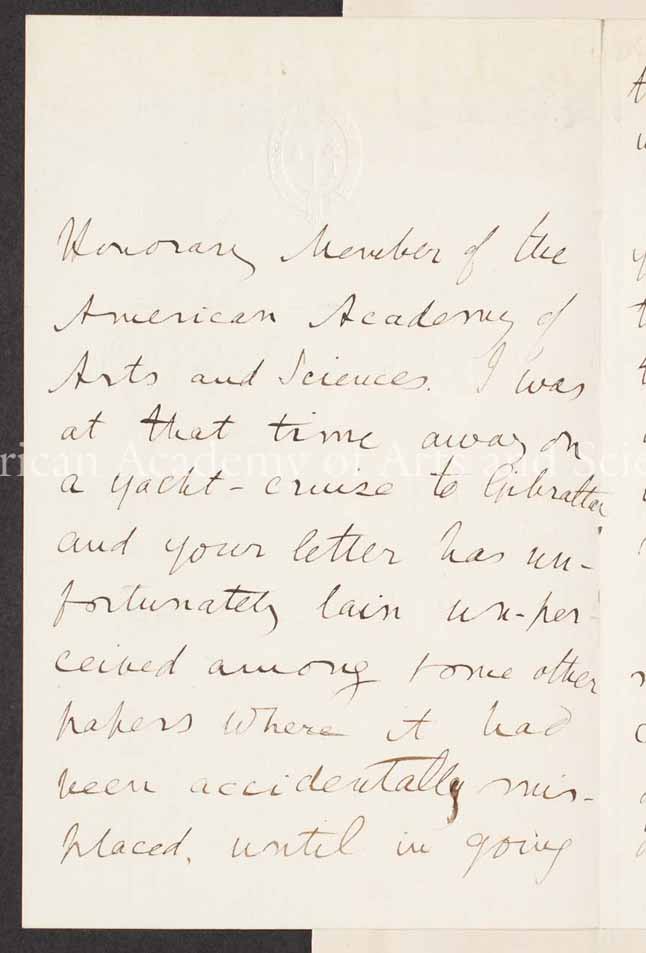 Honorary Member of the
American Academy of
Arts and Sciences. I was
at that time away on
a yacht-cruise to Gibraltar
and your letter has un-
fortunately lain un-per-
ceived among some other
papers where it had
been accidentally mis-
placed, until in going
rican Academy of Arts and Scie